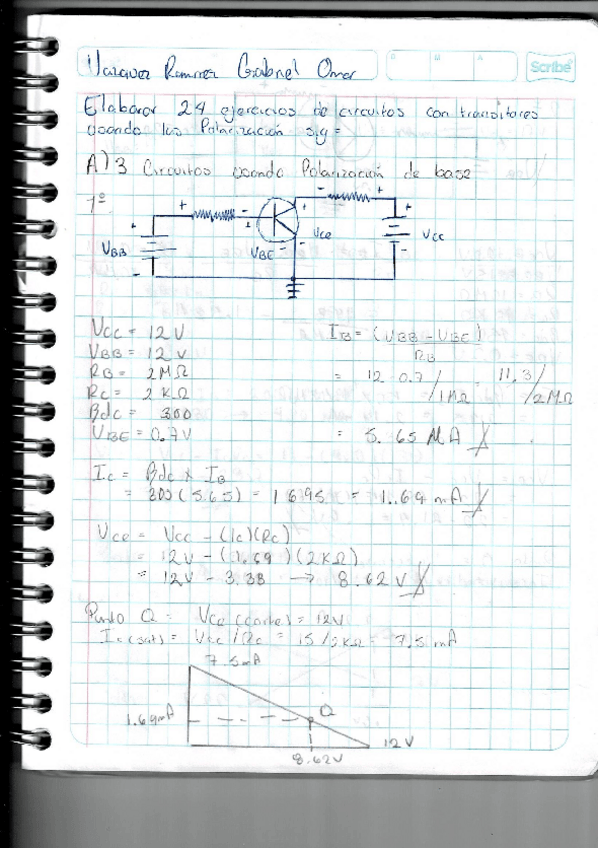 D M A
Scribe
Vazquez Ramirez Gabriel Omar
Elaborar 24 ejercicios de circuitos con transitores
usando las Polarización sig=
A) 3 Circuitos usando Polarización de base
1º
+ - + - + - + - + -
VBB VBE VCE VCC
VCC = 12 V
VBB = 12 V
RB = 2MΩ
RC = 2 KΩ
Bdc = 300
VBE = 0.7V
IB = (VBB - VBE)
RB
= 12 - 0.7 / 1MΩ = 11.3 / 2 MΩ
= 5.65 MA
IC = Bdc x IB
= 300 (5.65) = 1695 = 1.69 mA
VCE = VCC - (IC)(RC)
= 12V - (1.69)(2KΩ)
= 12V - 3.38 → 8.62 V
Punto Q = VCE (corte) = 12V
IC(sat) = VCC / RC = 15 / 2KΩ = 7.5 mA
7.5mA
1.69mA
Q
12 V
8.62V